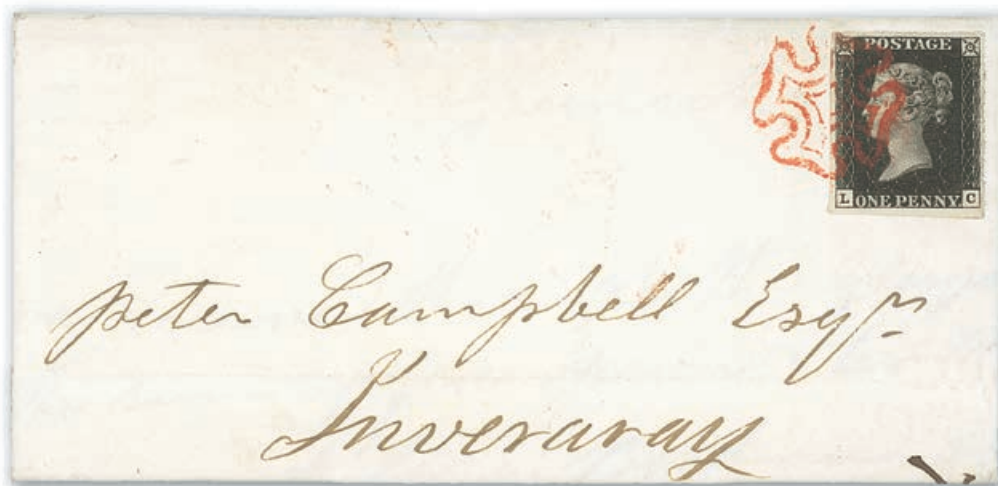 POSTAGE
L ONE PENNY. C
peter Campbell Esqr
Inveraray